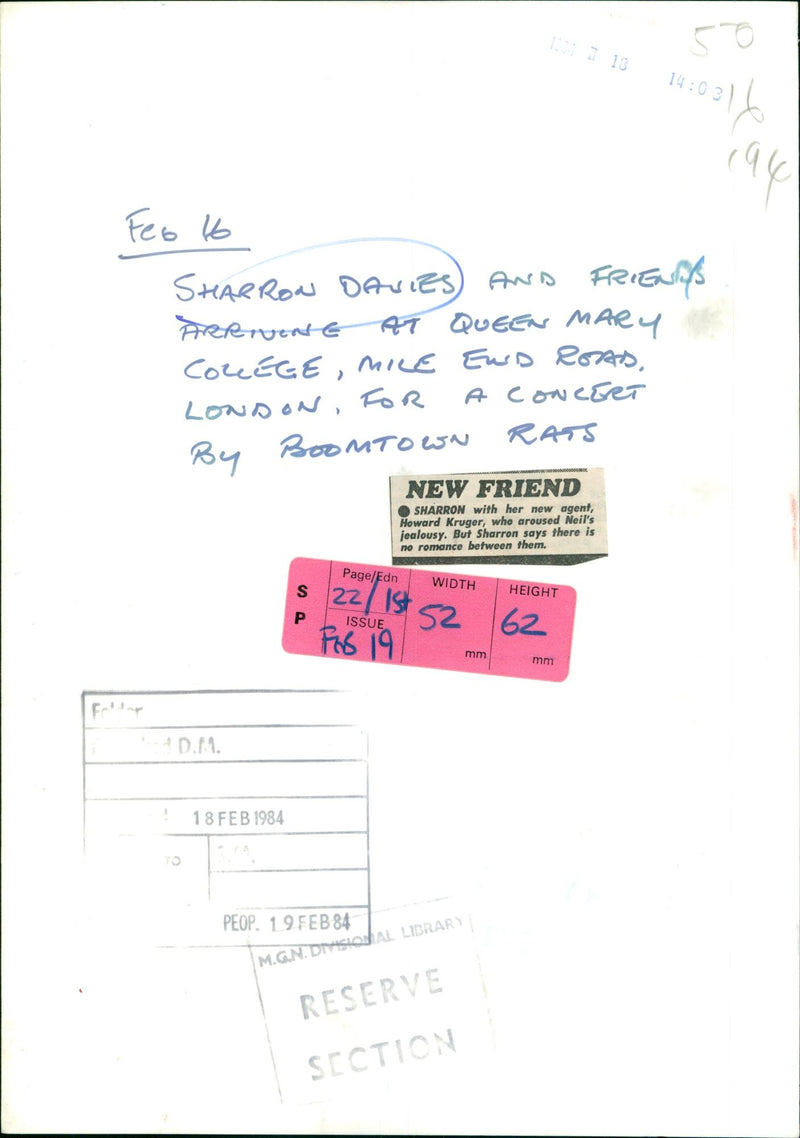 50
14:03
16
194
Feb 16
SHARRON DAVIES AND FRIENDS
ARRIVING AT QUEEN MARY
COLLEGE, MILE END ROAD,
LONDON, FOR A CONCERT
BY BOOMTOWN RATS
NEW FRIEND
● SHARRON with her new agent,
Howard Kruger, who aroused Neil's
jealousy. But Sharron says there is
no romance between them.
S P
Page/Edn
22/1st
ISSUE
FEB 19
WIDTH
52
mm
HEIGHT
62
mm
Folder
D.M.
18 FEB 1984
TO
PEOP. 19 FEB 84
M.G.N. DIVISIONAL LIBRARY
RESERVE
SECTION